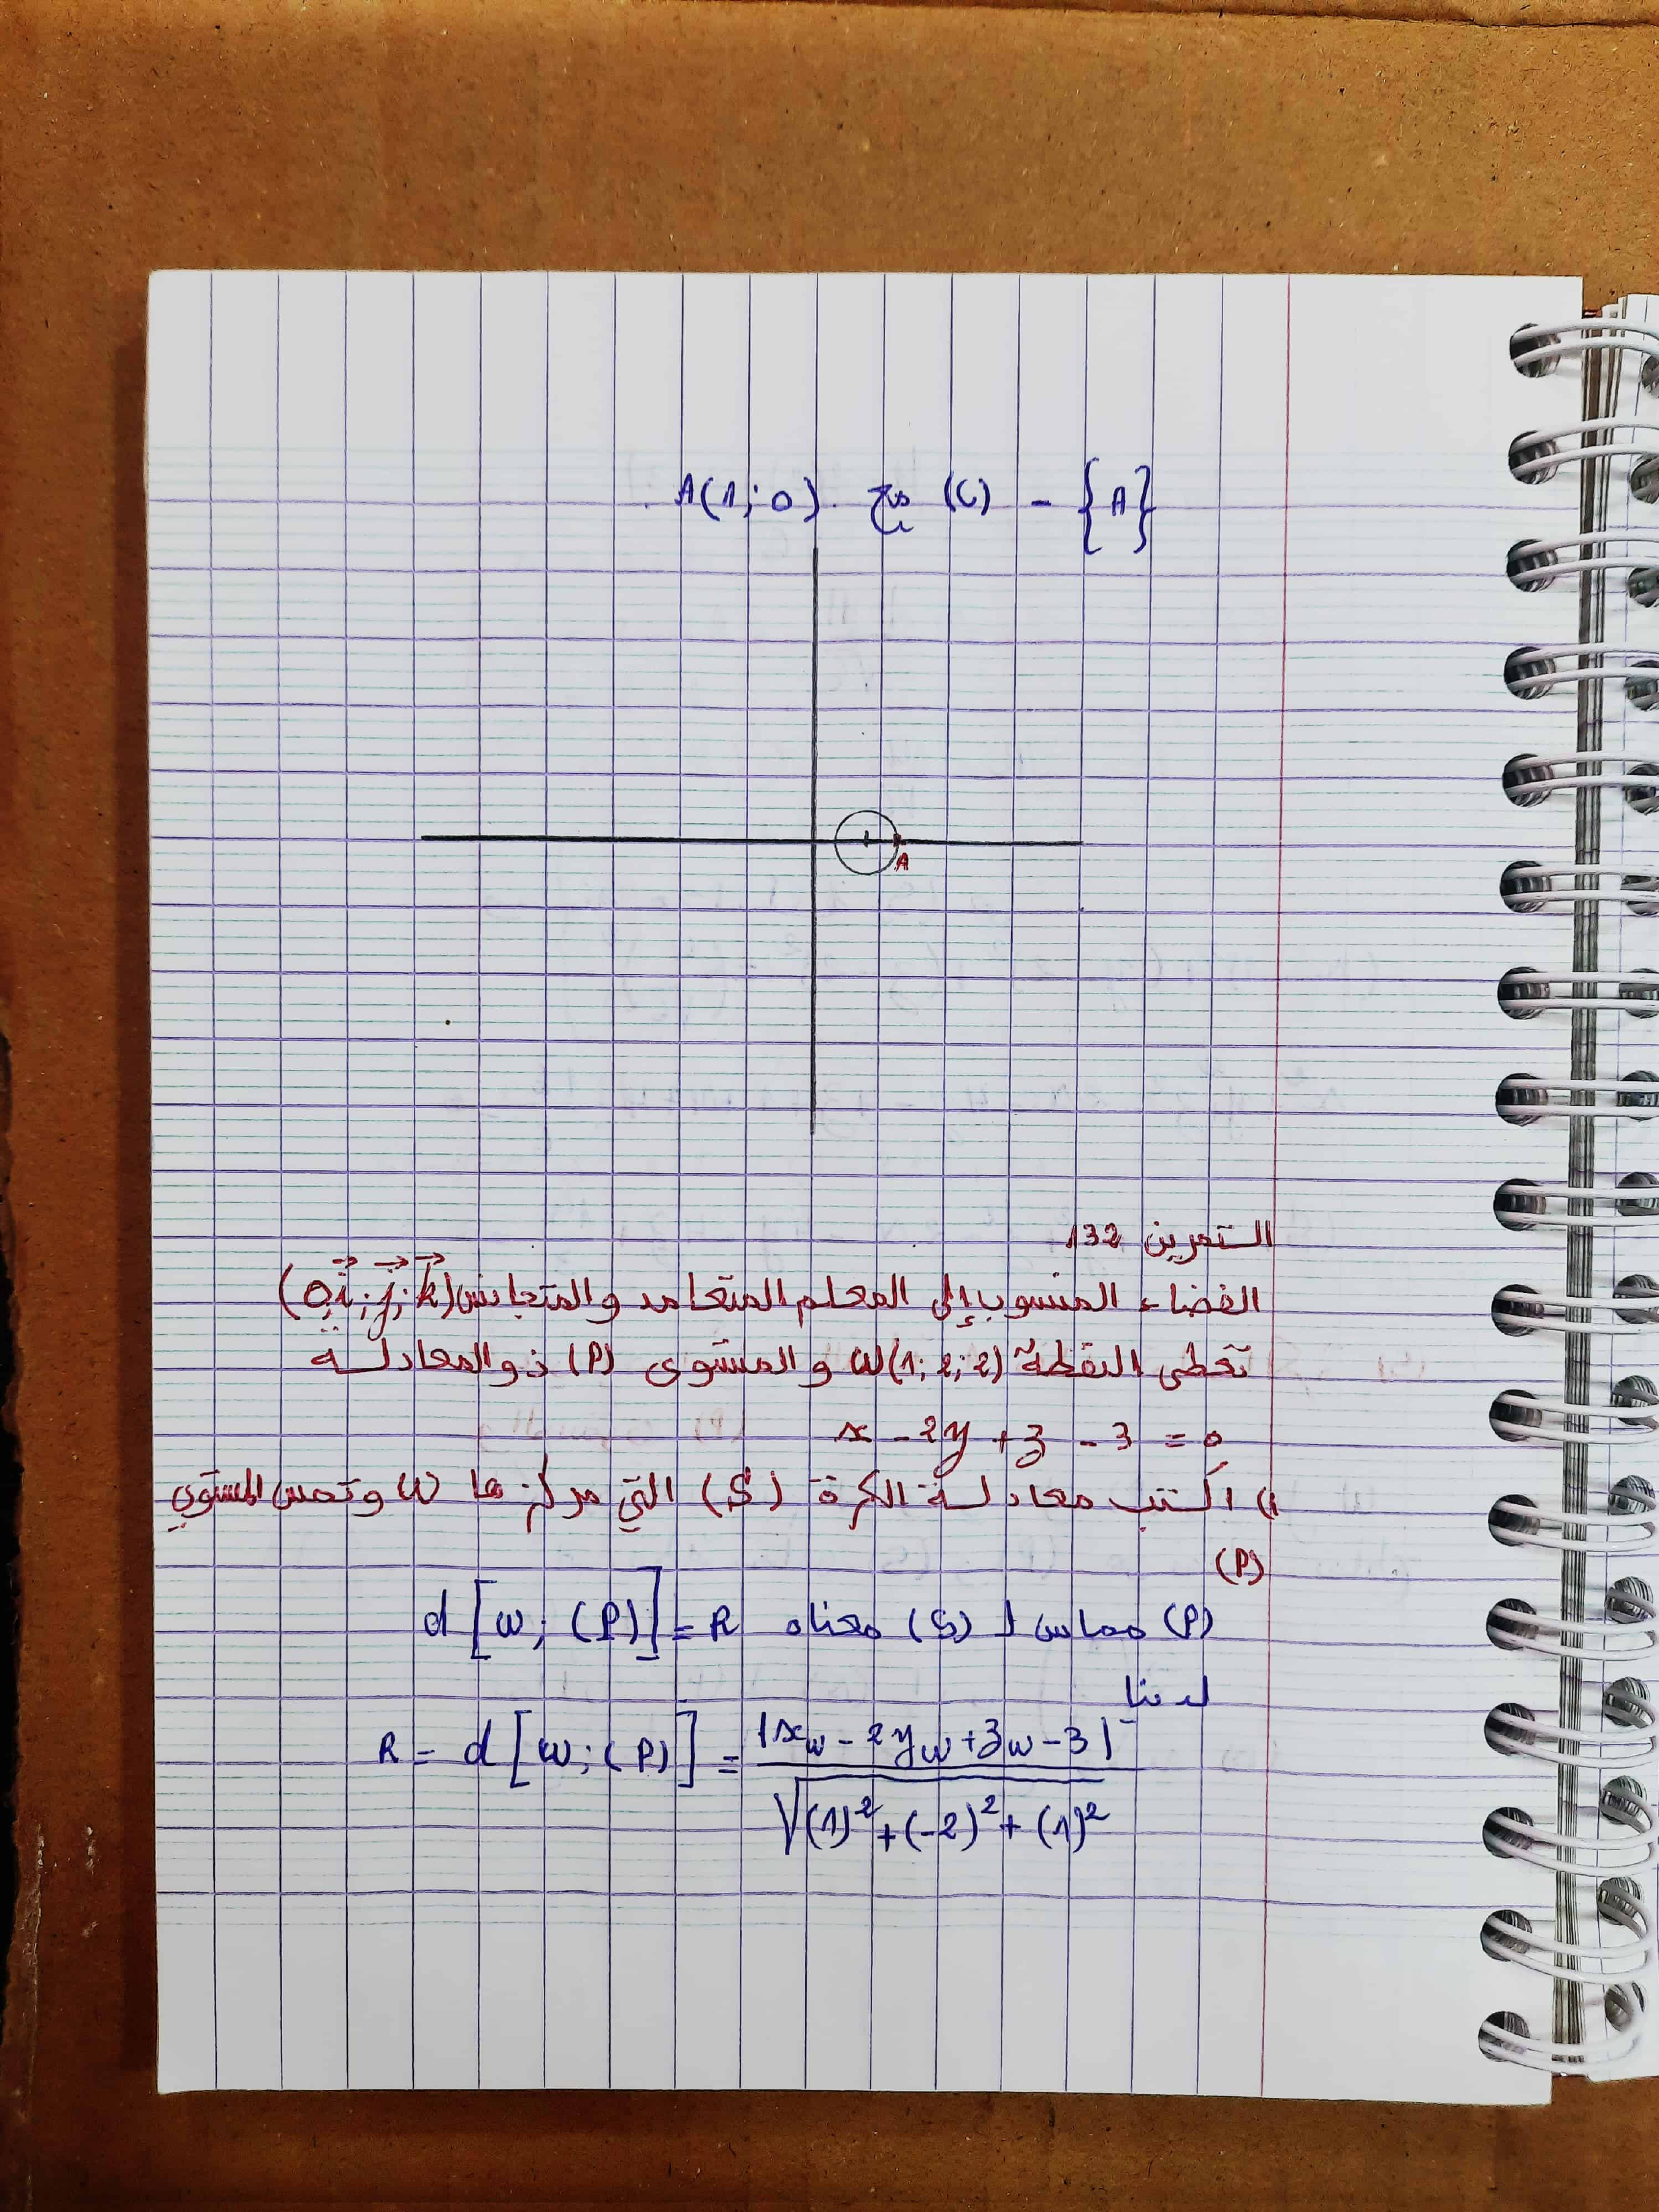 A(1; 0) مع (C) - {A}
A
التمرين 132
الفضاء المنسوب إلى المعلم المتعامد والمتجانس (O; i; j; k)
نعطي النقطة ω(1; 2; 2) و المستوى (P) ذو المعادلة
x - 2y + z - 3 = 0
1) اكتب معادلة الكرة (S) التي مركزها ω وتمس المستوي
(P)
(P) مماس لـ (S) معناه d[ω; (P)] = R
لدينا
R = d[ω; (P)] = |xω - 2yω + zω - 3| / √((1)² + (-2)² + (1)²)